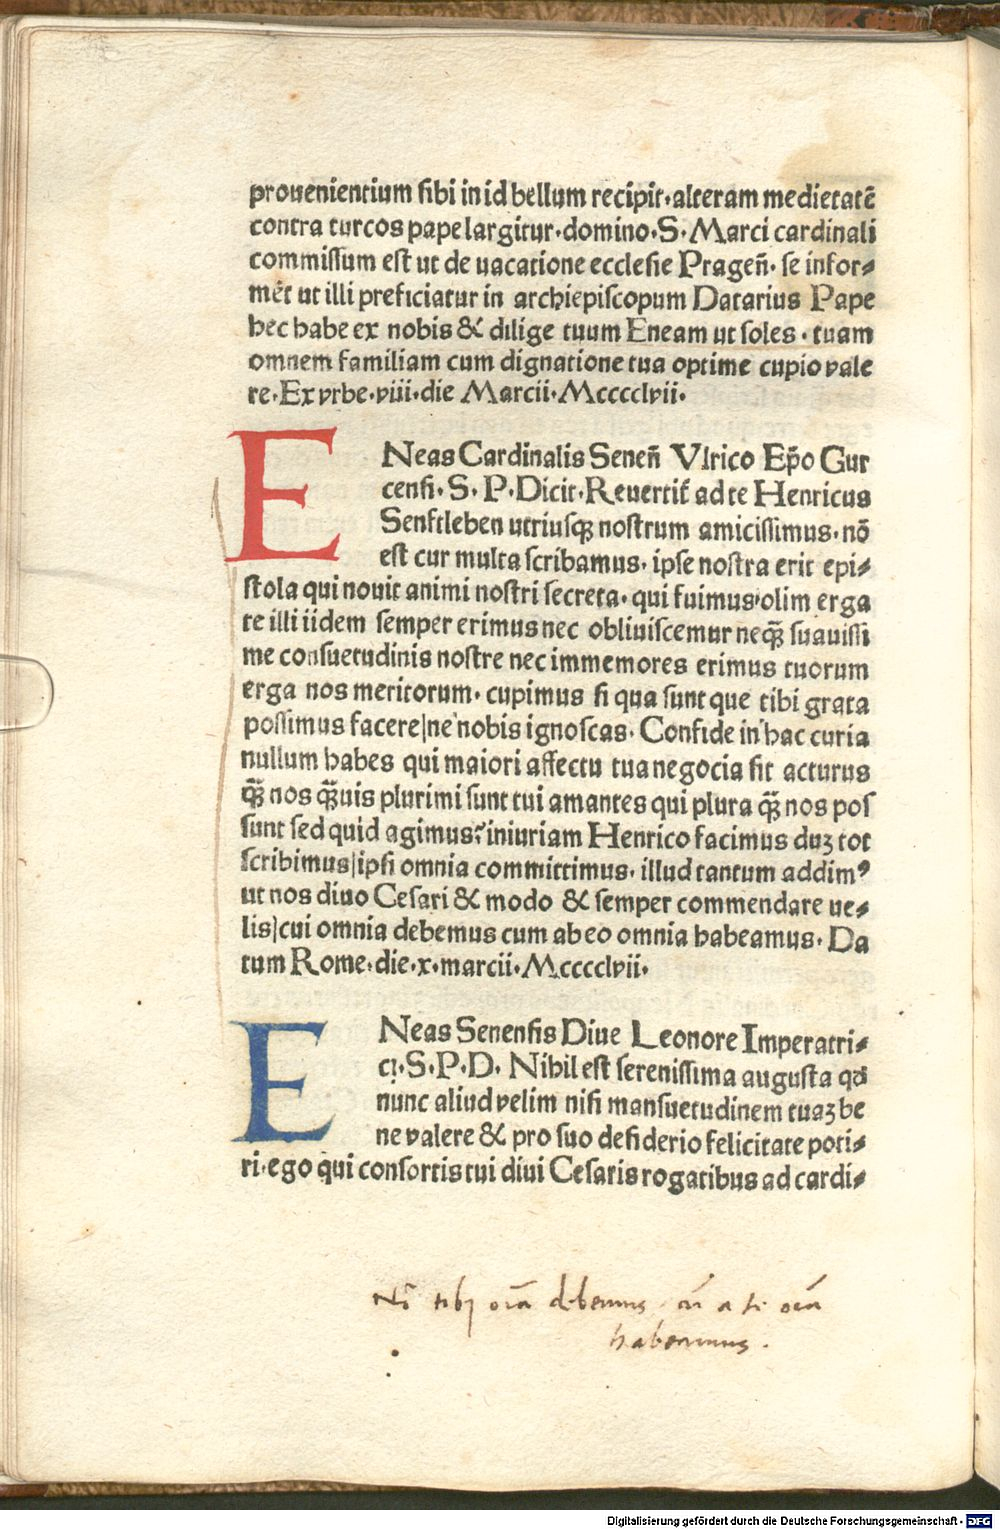 prouenientium sibi in id bellum recipit·alteram medietatē
contra turcos pape largitur·domino·S·Marci cardinali
commissum est ut de uacatione ecclesie Pragen̄·se infor⸗
mēt ut illi preficiatur in archiepiscopum Datarius Pape
hec habe ex nobis & dilige tuum Eneam ut soles·tuam
omnem familiam cum dignatione tua optime cupio vale
re·Ex vrbe·viii·die Marcii·Mcccclvii·
ENeas Cardinalis Senen̄ Vlrico Ep̄o Gur
censi·S·P·Dicit·Reuertit᷑ ad te Henricus
Senftleben utriusqꝫ nostrum amicissimus·nō
est cur multa scribamus·ipse nostra erit epi⸗
stola qui nouit animi nostri secreta·qui fuimus olim erga
te illi iidem semper erimus nec obliuiscemur neqꝫ suauissi
me consuetudinis nostre nec immemores erimus tuorum
erga nos meritorum·cupimus si qua sunt que tibi grata
possimus facere|ne nobis ignoscas·Confide in hac curia
nullum habes qui maiori affectu tua negocia sit acturus
qꝫ̄ nos qꝫ̄uis plurimi sunt tui amantes qui plura qꝫ̄ nos pos
sunt sed quid agimus? iniuriam Henrico facimus duꝫ tot
scribimus|ipsi omnia committimus·illud tantum addimꝰ
ut nos diuo Cesari & modo & semper commendare ue⸗
lis|cui omnia debemus cum ab eo omnia habeamus·Da
tum Rome·die·x·marcii·Mcccclvii·
ENeas Senensis Diue Leonore Imperatri⸗
ci·S·P·D·Nihil est serenissima augusta qđ
nunc aliud velim nisi mansuetudinem tuaꝫ be
ne valere & pro suo desiderio felicitate poti⸗
ri·ego qui consortis tui diui Cesaris rogatibus ad cardi⸗
Nō tibj oīa debemus cū a te oīa
habeamus.
Digitalisierung gefördert durch die Deutsche Forschungsgemeinschaft - DFG